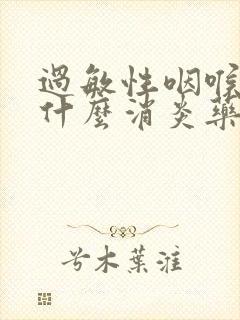 過敏性咽喉
什麼消炎藥
兮木葉淮